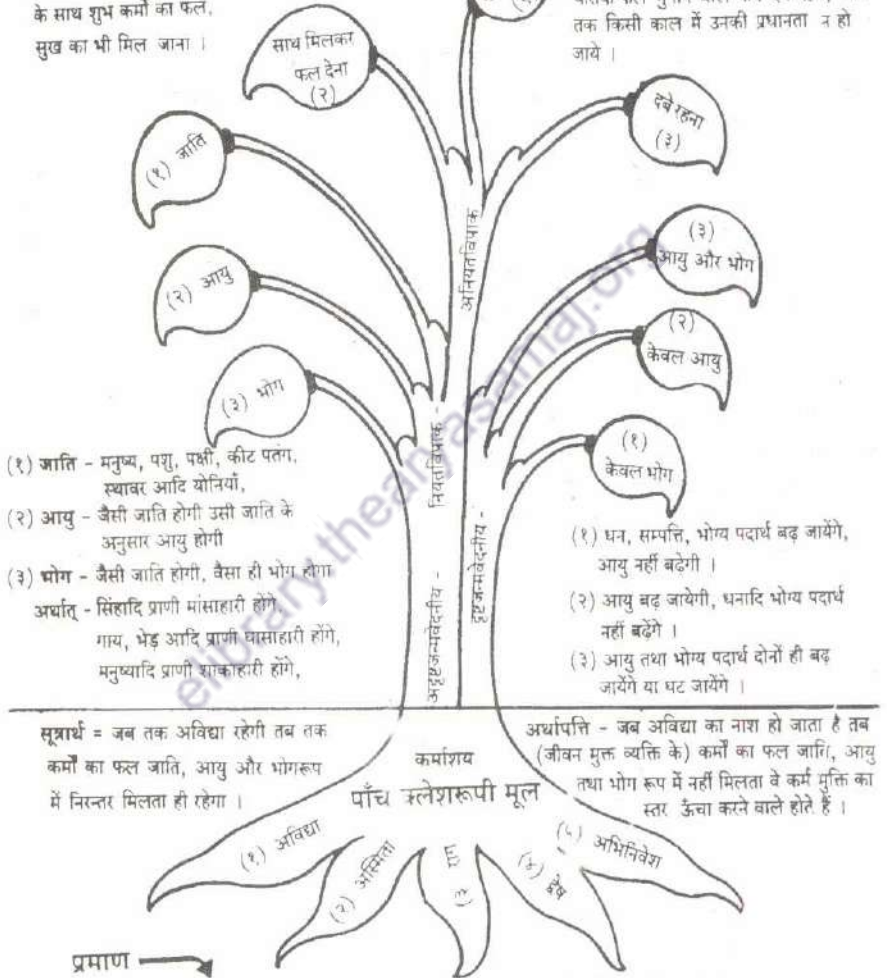 के साथ शुभ कर्मों का फल,
सुख का भी मिल जाना ।
तक किसी काल में उनकी प्रधानता न हो
जाये ।
साथ मिलकर
फल देना
(२)
दबे रहना
(३)
(१) जाति
(२) आयु
(३) भोग
(३)
आयु और भोग
(२)
केवल आयु
(१)
केवल भोग
अनियतविपाक
नियतविपाक -
अदृष्टजन्मवेदनीय -
दृष्टजन्मवेदनीय -
(१) जाति - मनुष्य, पशु, पक्षी, कीट पतंग,
स्थावर आदि योनियाँ,
(२) आयु - जैसी जाति होगी उसी जाति के
अनुसार आयु होगी
(३) भोग - जैसी जाति होगी, वैसा ही भोग होगा
अर्थात् - सिंहादि प्राणी मांसाहारी होंगे,
गाय, भेड़ आदि प्राणी घासाहारी होंगे,
मनुष्यादि प्राणी शाकाहारी होंगे,
(१) धन, सम्पत्ति, भोग्य पदार्थ बढ़ जायेंगे,
आयु नहीं बढ़ेगी ।
(२) आयु बढ़ जायेगी, धनादि भोग्य पदार्थ
नहीं बढ़ेंगे ।
(३) आयु तथा भोग्य पदार्थ दोनों ही बढ़
जायेंगे या घट जायेंगे ।
सूत्रार्थ = जब तक अविद्या रहेगी तब तक
कर्मों का फल जाति, आयु और भोगरूप
में निरन्तर मिलता ही रहेगा ।
अर्थापत्ति - जब अविद्या का नाश हो जाता है तब
(जीवन मुक्त व्यक्ति के) कर्मों का फल जाति, आयु
तथा भोग रूप में नहीं मिलता वे कर्म मुक्ति का
स्तर ऊँचा करने वाले होते हैं ।
कर्माशय
पाँच क्लेशरूपी मूल
(१) अविद्या
(२) अस्मिता
(३) राग
(४) द्वेष
(५) अभिनिवेश
प्रमाण
elibrary.thearyasamaj.org